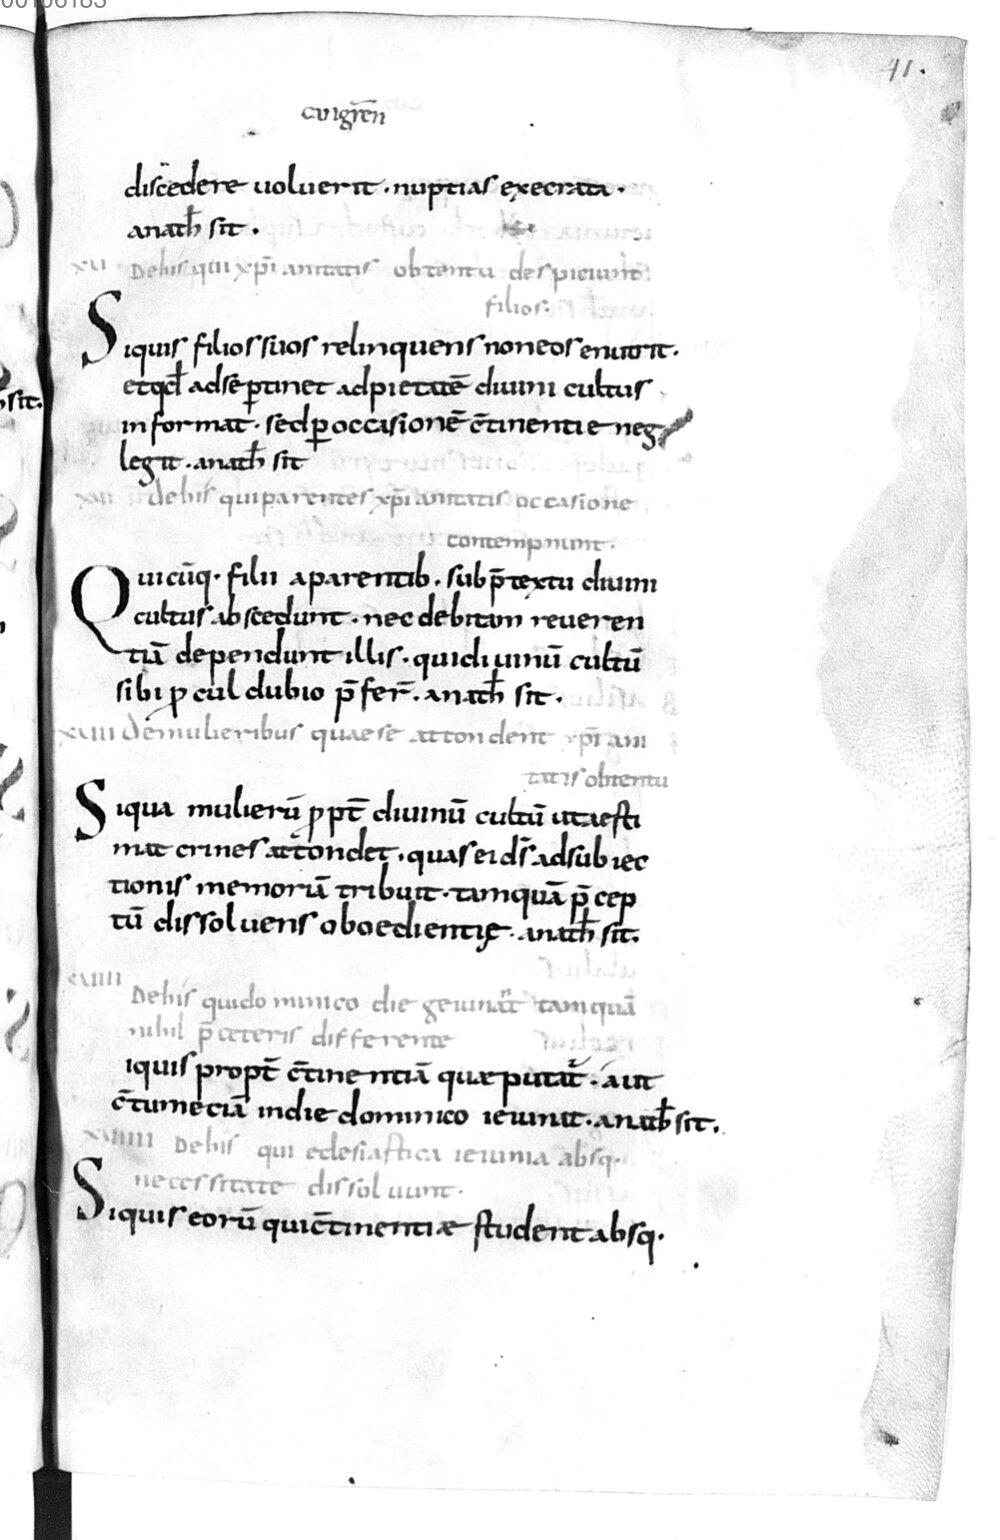 00106183
41.
cuigr̄en
discedere uoluerit · nuptias execrata ·
anath̄ sit .
xv Dehis qui xp̄ianitatis obtentu despiciunt
filios.
Siquis filios suos relinquens non eos enutrit .
etqd̄ adsep̱tinet adpietatē diuini cultus
informat · sed p̱ occasionē c̄tinentie neg
legit . anath̄ sit
xvi dehis qui parentes xp̄ianitatis occasione
contempnunt .
Quicūq · filii aparentib . sub p̄textu diuini
cultus abscedunt . nec debitam reueren
tiā dependunt illis . qui diuinū cultū
sibi ꝓcul dubio p̄fer̄ . anath̄ sit .
xvii demulieribus quaese attondent xp̄iani
tatis obtentu
Siqua mulierū ꝓpt̄ diuinū cultū ut aesti
mat crines attondet . quas ei ds̄ adsubiec
tionis memoriā tribuit . tamquā p̄cep
tū dissoluens oboedientię . anath̄ sit .
xviii Dehis quidominico die geiunāt tamquā
nihil p̄ceteris differente
iquis propt̄ c̄tinentiā quae putat̄ . aut
c̄tumeciā indie dominico ieiunat . anath̄ sit .
xviiii Dehis qui eclesiastica ieiunia absq .
necessitate dissoluunt .
Siquis eorū qui c̄tinentiae student absq .
sit.